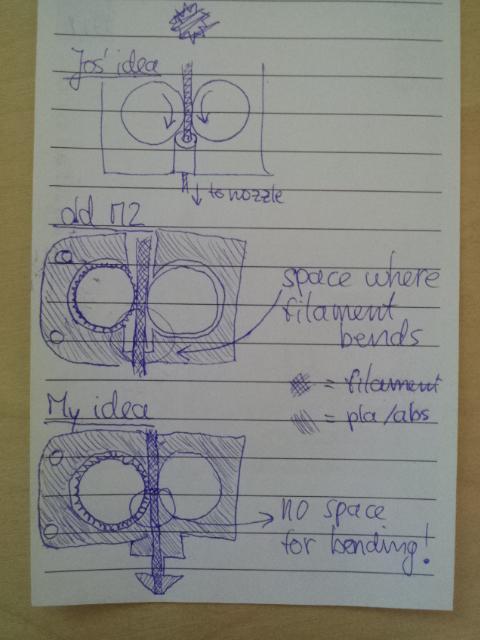 Jos' idea
to nozzle
old M2
space where
filament
bends
= filament
= pla/abs
My idea
no space
for bending!